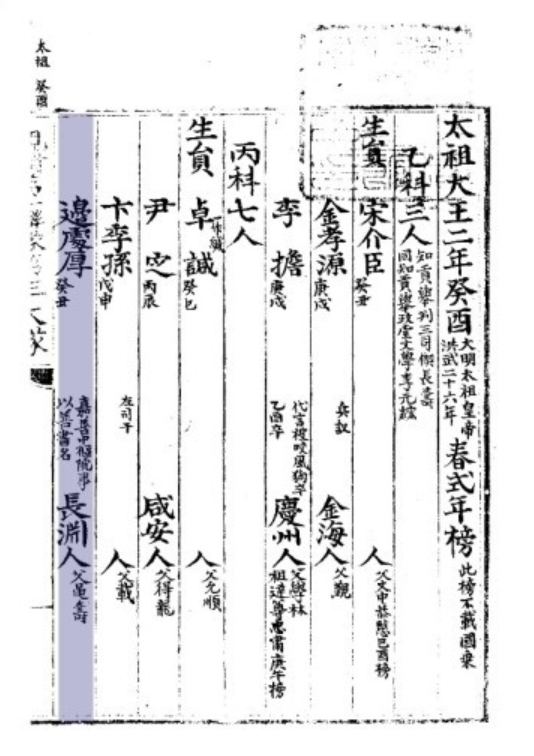 太祖大王二年癸酉 大明太祖皇帝 洪武二十六年 春式年榜 此榜不載國乘
乙科三人 知貢擧判三司偰長壽 同知貢擧政堂文學李元紘
生員 宋介臣 癸丑 人 父文中恭愍己酉榜
金孝源 庚戌 兵議 金海人 父覯
李擔 庚戌 代言被咬風狗卒 乙酉卒 慶州人 父學林 祖達尊忠肅庚午榜
丙科七人
生員 卓誠 癸巳 人 父允順
尹定 丙辰 咸安人 父得龍
卞李孫 戊申 左司干 人 父載
邊處厚 癸丑 嘉善中樞院事 以善書名 長淵人 父龜壽
太祖 癸酉